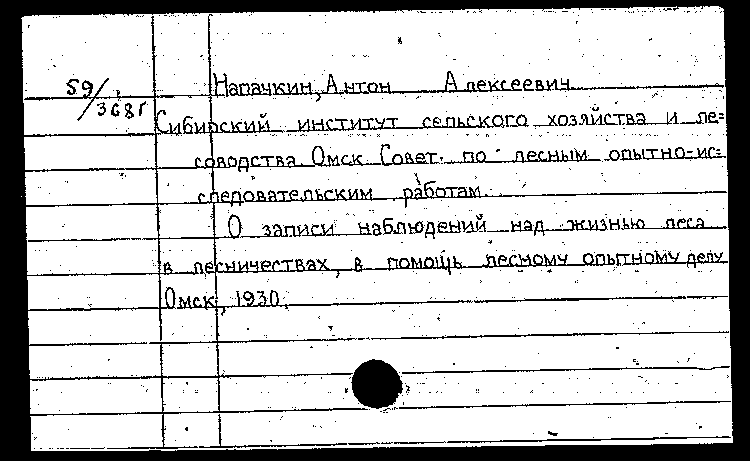 59/3681
Напачкин, Антон Алексеевич
Сибирский институт сельского хозяйства и ле=
соводства Омск. Совет по лесным опытно-ис=
следовательским работам.
О записи наблюдений над жизнью леса
в лесничествах, в помощь лесному опытному делу
Омск, 1930.